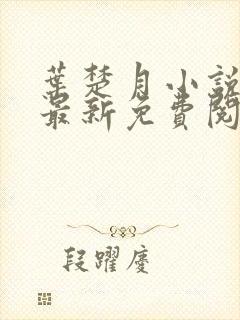 葉楚月小說
最新免費閱
段躍慶